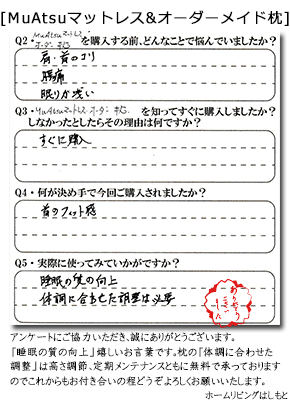 [MuAtsuマットレス&オーダーメイド枕]
Q2・MuAtsuマットレス オーダー枕 を購入する前、どんなことで悩んでいましたか？
肩・首のコリ
腰痛
眠りが浅い
Q3・MuAtsuマットレス オーダー枕 を知ってすぐに購入しましたか？
しなかったとしたらその理由は何ですか？
すぐに購入
Q4・何が決め手で今回ご購入されましたか？
首のフィット感
Q5・実際に使ってみていかがですか？
睡眠の質の向上
体調に合わせた調整は必要
ありがとうございました
アンケートにご協力いただき、誠にありがとうございます。
『睡眠の質の向上』嬉しいお言葉です。枕の『体調に合わせた
調整』は高さ調節、定期メンテナンスともに無料で承っております
のでこれからもお付き合いの程どうぞよろしくお願いいたします。
ホームリビングはしもと